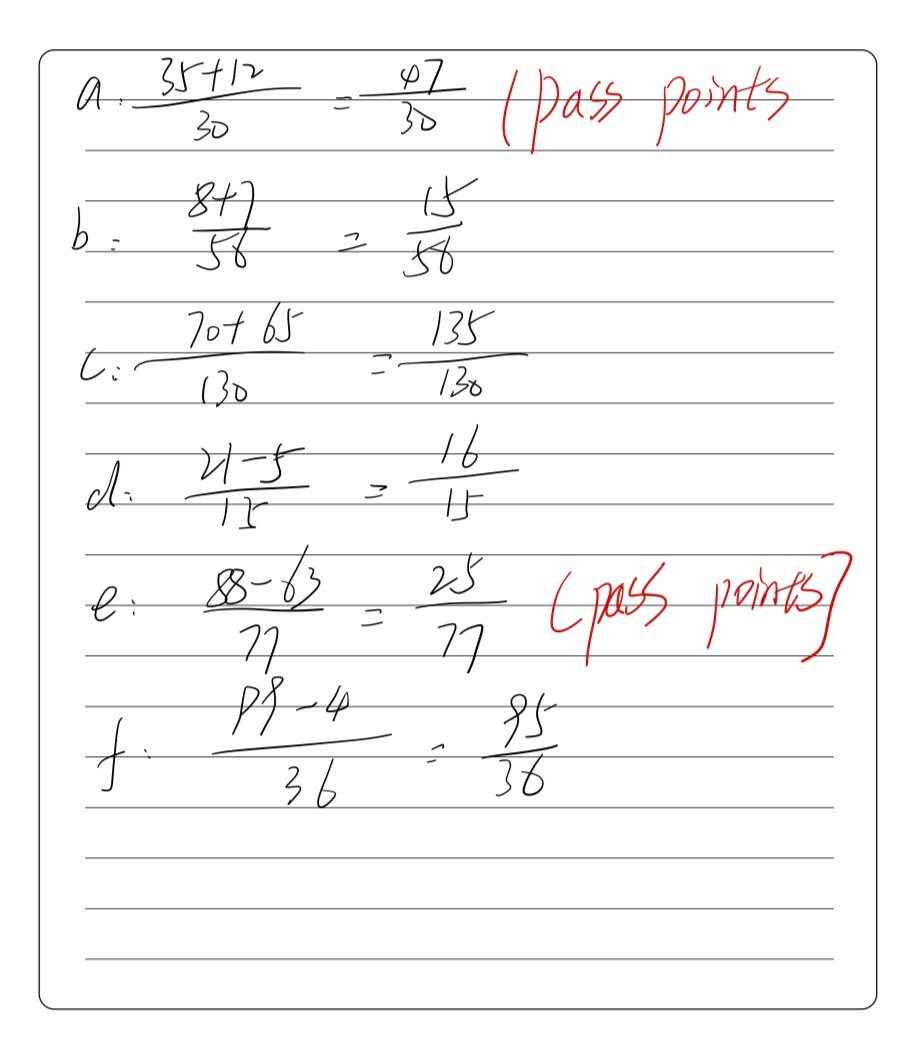 a. 35+12/30 = 47/30 (pass points
b. 8+7/56 = 15/56
c. 70+65/130 = 135/130
d. 21-5/15 = 16/15
e. 88-63/77 = 25/77 (pass points)
f. 99-4/36 = 95/36